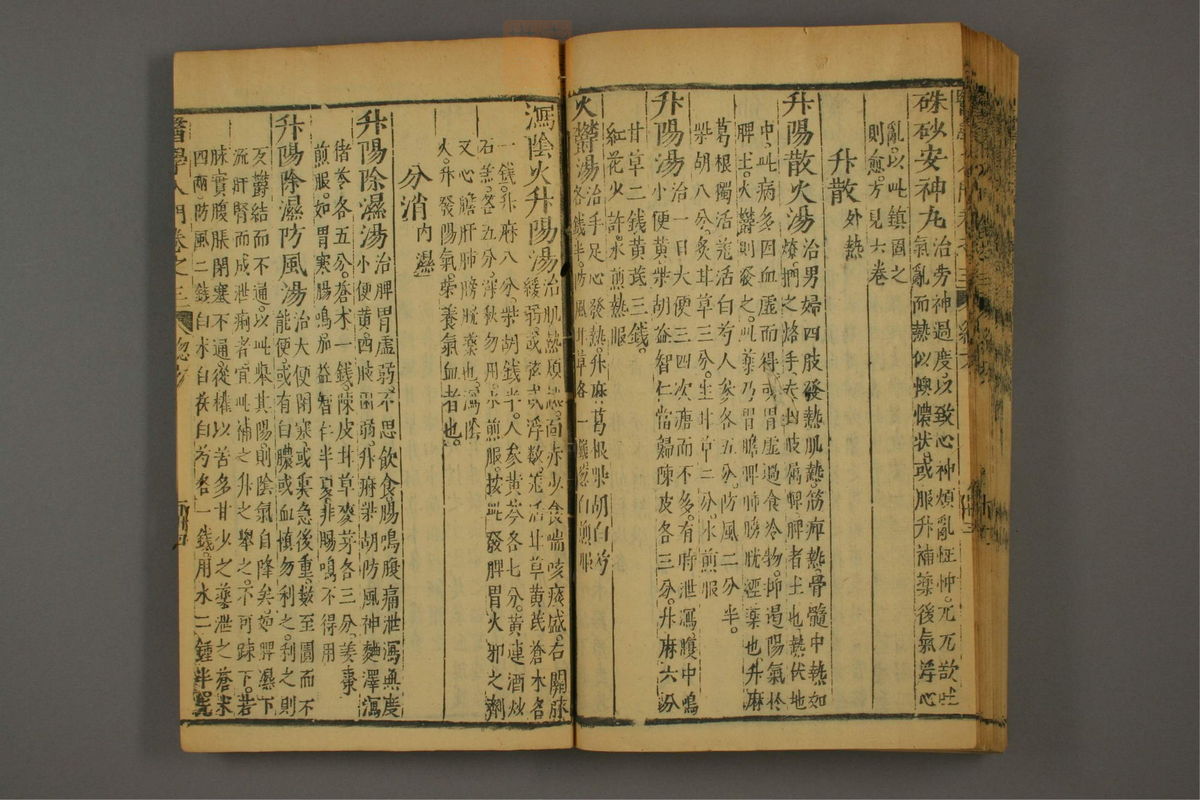 硃砂安神丸治勞神過度以致心神煩亂怔忡兀兀欲吐
氣亂而熱似懊憹狀或服升補藥後氣浮心
亂以此鎮固之
則愈方見六卷
升散外熱
升陽散火湯治男婦四肢發熱肌熱筋痺熱骨髓中熱如
燎捫之烙手夫四肢屬脾脾者土也熱伏地
中此病多因血虛而得或胃虛過食冷物抑遏陽氣於
脾土火鬱則發之此藥乃胃膽脾肺膀胱經藥也升麻
葛根獨活羌活白芍人參各五分防風二分半
柴胡八分炙甘草三分生甘草二分水煎服
升陽湯治一日大便三四次溏而不多有時泄瀉腹中鳴
小便黃柴胡益智仁當歸陳皮各三分升麻六分
甘草二錢黃芪三錢
紅花火許水煎熱服
火鬱湯治手足心發熱升麻葛根柴胡白芍
各錢半防風甘草各一錢葱白煎服
瀉陰火升陽湯治肌熱煩熱面赤少食喘咳痰盛右關脉
緩弱或弦或浮數羌活甘草黃芪蒼朮各
一錢升麻八分柴胡錢半人參黃芩各七分黃連酒炒
石膏各五分深秋勿用水煎服按此發脾胃火邪之劑
又心膽肝肺膀胱藥也瀉陰
火升發陽氣榮養氣血者也
分消內濕
升陽除濕湯治脾胃虛弱不思飲食腸鳴腹痛泄瀉無度
小便黃四肢困弱升麻柴胡防風神麯澤瀉
猪苓各五分蒼朮一錢陳皮甘草麥芽各三分姜棗
煎服如胃寒腸鳴加益智仁半夏非腸鳴不得用
升陽除濕防風湯治大便閉塞或裏急後重數至圊而不
能便或有白膿或血慎勿利之利之則
反鬱結而不通以此舉其陽則陰氣自降矣如脾濕下
流肝腎而成泄痢者宜此補之升之舉之不可踈下若
脉實腹脹閉塞不通從權以苦多甘少之藥泄之蒼朮
四兩防風二錢白朮白茯白芍各一錢用水二鍾半先
醫學入門卷之三